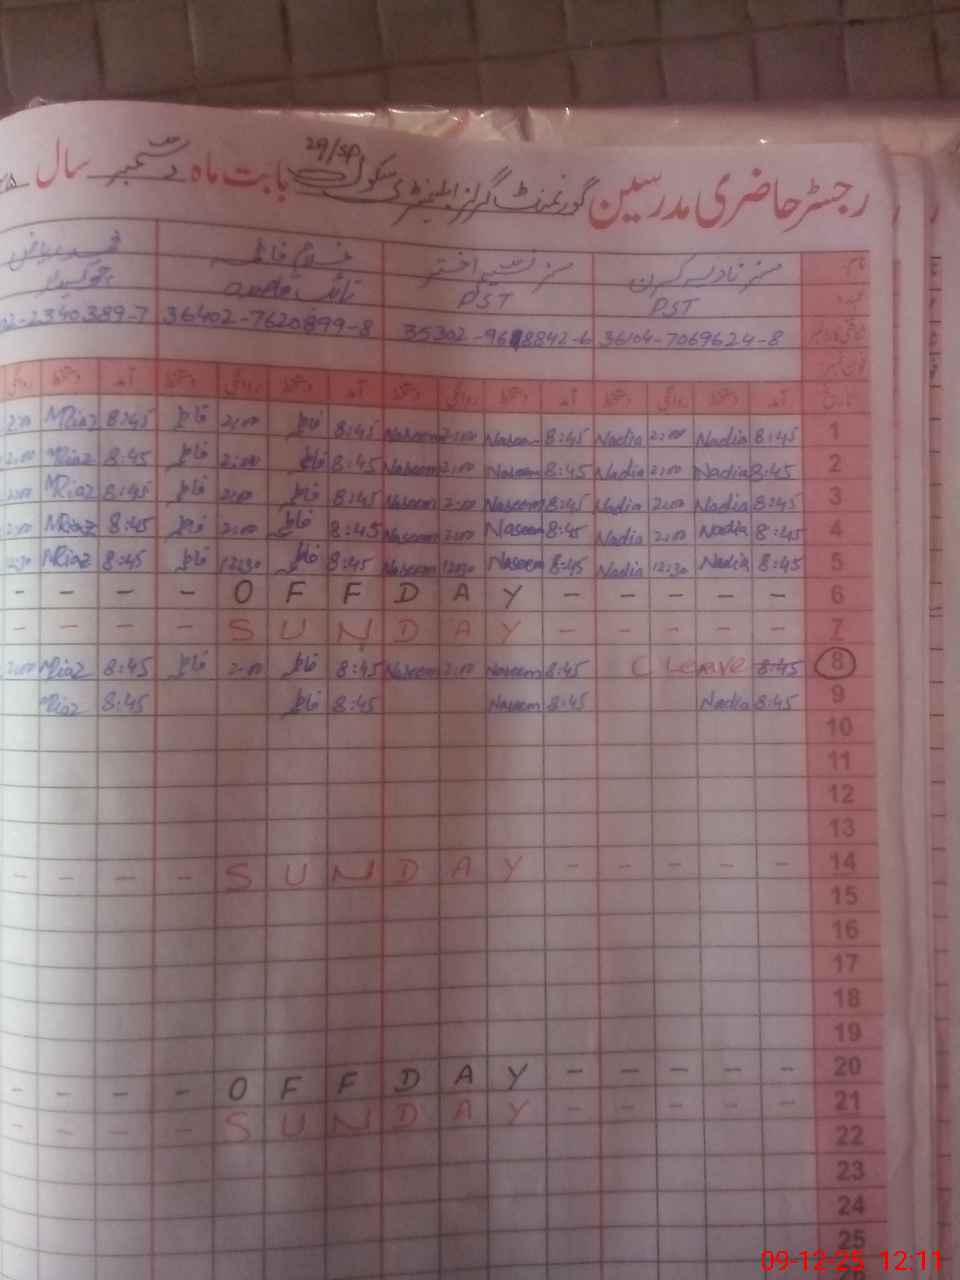 رجسٹر حاضری مدرسین گورنمنٹ گرلز ایلیمنٹری سکول 29/SP بابت ماہ دسمبر سال
نام مسز نادیہ کرن مسز نسیم اختر غلام فاطمہ
عہدہ PST PST نائب قاصد
36104-7069624-8 35302-9618842-6 36402-7620899-8 02-2340389-7
تاریخ آمد دستخط روانگی دستخط آمد دستخط روانگی دستخط آمد دستخط روانگی دستخط آمد دستخط روانگی
1 8:45 Nadia 2:00 Nadia 8:45 Naseem 2:00 Naseem 8:45 فاطمہ 2:00 فاطمہ 8:45 MRiaz 2:00
2 8:45 Nadia 2:00 Nadia 8:45 Naseem 2:00 Naseem 8:45 فاطمہ 2:00 فاطمہ 8:45 MRiaz 2:00
3 8:45 Nadia 2:00 Nadia 8:45 Naseem 2:00 Naseem 8:45 فاطمہ 2:00 فاطمہ 8:45 MRiaz 2:00
4 8:45 Nadia 2:00 Nadia 8:45 Naseem 2:00 Naseem 8:45 فاطمہ 2:00 فاطمہ 8:45 MRiaz 2:00
5 8:45 Nadia 12:30 Nadia 8:45 Naseem 12:30 Naseem 8:45 فاطمہ 12:30 فاطمہ 8:45 MRiaz
- - - - O F F D A Y - - - - - 6
- - - - S U N D A Y - - - - - 7
8 8:45 C Leave 8:45 Naseem 2:00 Naseem 8:45 فاطمہ 2:00 فاطمہ 8:45 MRiaz 2:00
9 8:45 Nadia 8:45 Naseem 8:45 فاطمہ 8:45 MRiaz
10
11
12
13
- - - - S U N D A Y - - - - - 14
15
16
17
18
19
- - - - O F F D A Y - - - - - 20
- - - - S U N D A Y - - - - - 21
22
23
24
25
09-12-25 12:11